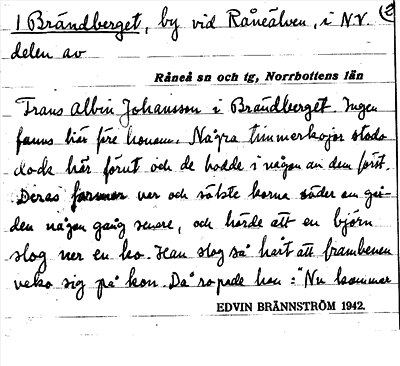 1 Brändberget, by vid Råneälven, i N.V. (2
delen av
Råneå sn och tg, Norrbottens län
Frans Albin Johansson i Brändberget. Ingen
fanns här före honom. Några timmerkojor stodo
dock här förut och de bodde i någon av dem först.
Deras farmor var och sökte korna söder om går-
den någon gång senare, och hörde att en björn
slog ner en ko. Han slog så hårt att frambenen
veko sig på kon. Då ropade hon: "Nu kommer
EDVIN BRÄNNSTRÖM 1942.